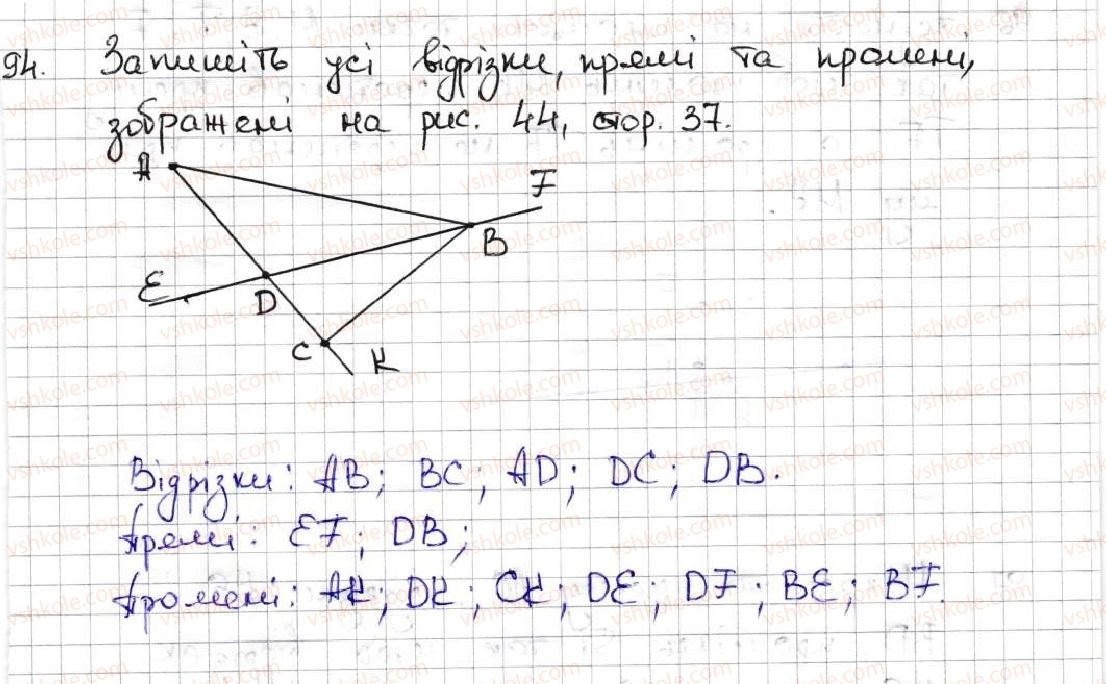 94. Запишіть усі відрізки, прямі та промені,
зображені на рис. 44, стор. 37.
A
F
B
E
D
C K
Відрізки: AB; BC; AD; DC; DB.
Прямі: EF; DB;
Промені: AK; DK; CK; DE; DF; BE; BF.